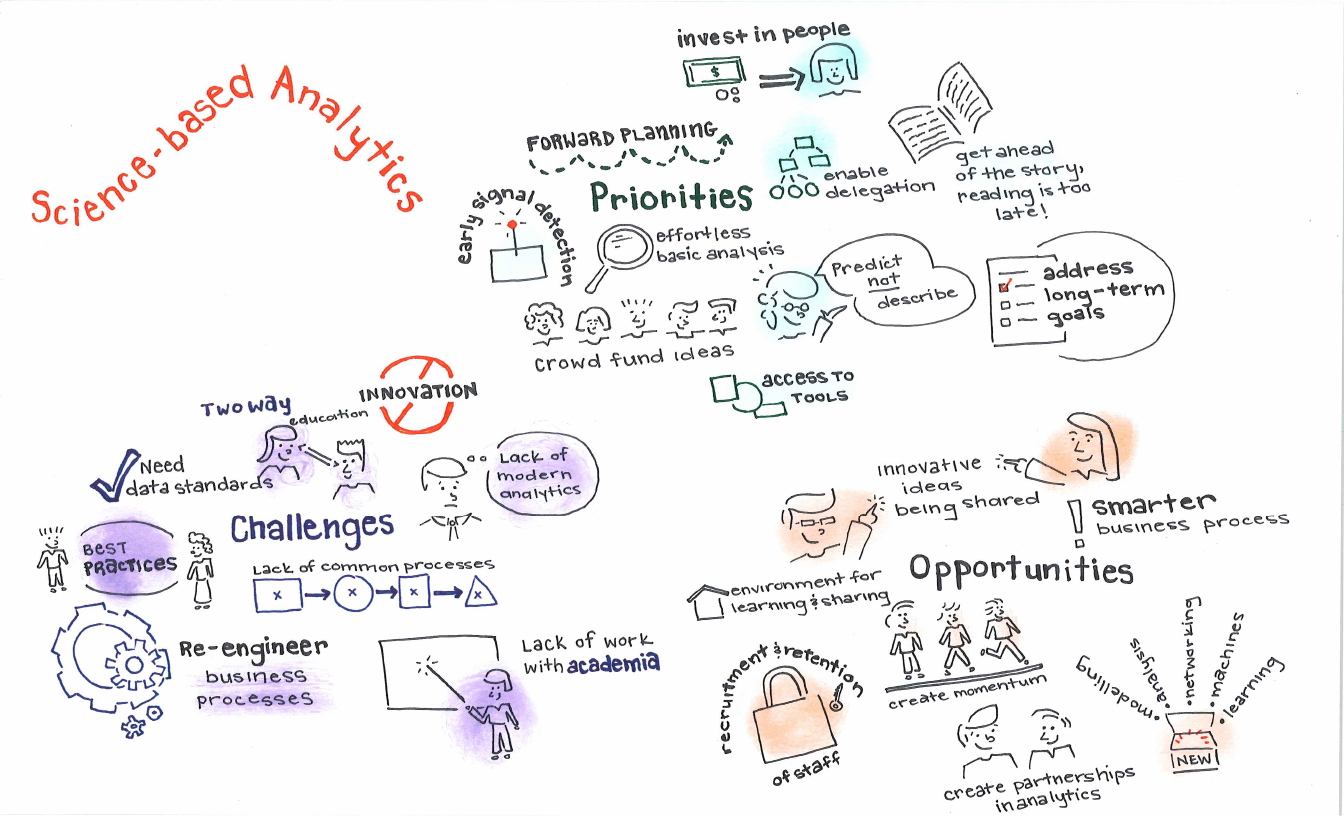 Science-based Analytics
invest in people
$
FORWARD PLANNING
Priorities
early signal detection
effortless
basic analysis
enable
delegation
get ahead
of the story,
reading is too
late!
Predict
not
describe
address
long-term
goals
crowd fund ideas
ACCESS TO
TOOLS
INNOVATION
Two way
education
Need
data standards
Lack of
modern
analytics
Challenges
BEST
PRACTICES
Lack of common processes
x
x
x
x
Re-engineer
business
processes
Lack of work
with academia
innovative
ideas
being shared
smarter
business process
Opportunities
environment for
learning & sharing
recruitment & retention
of staff
create momentum
create partnerships
in analytics
modelling
analysis
networking
machines
learning
NEW